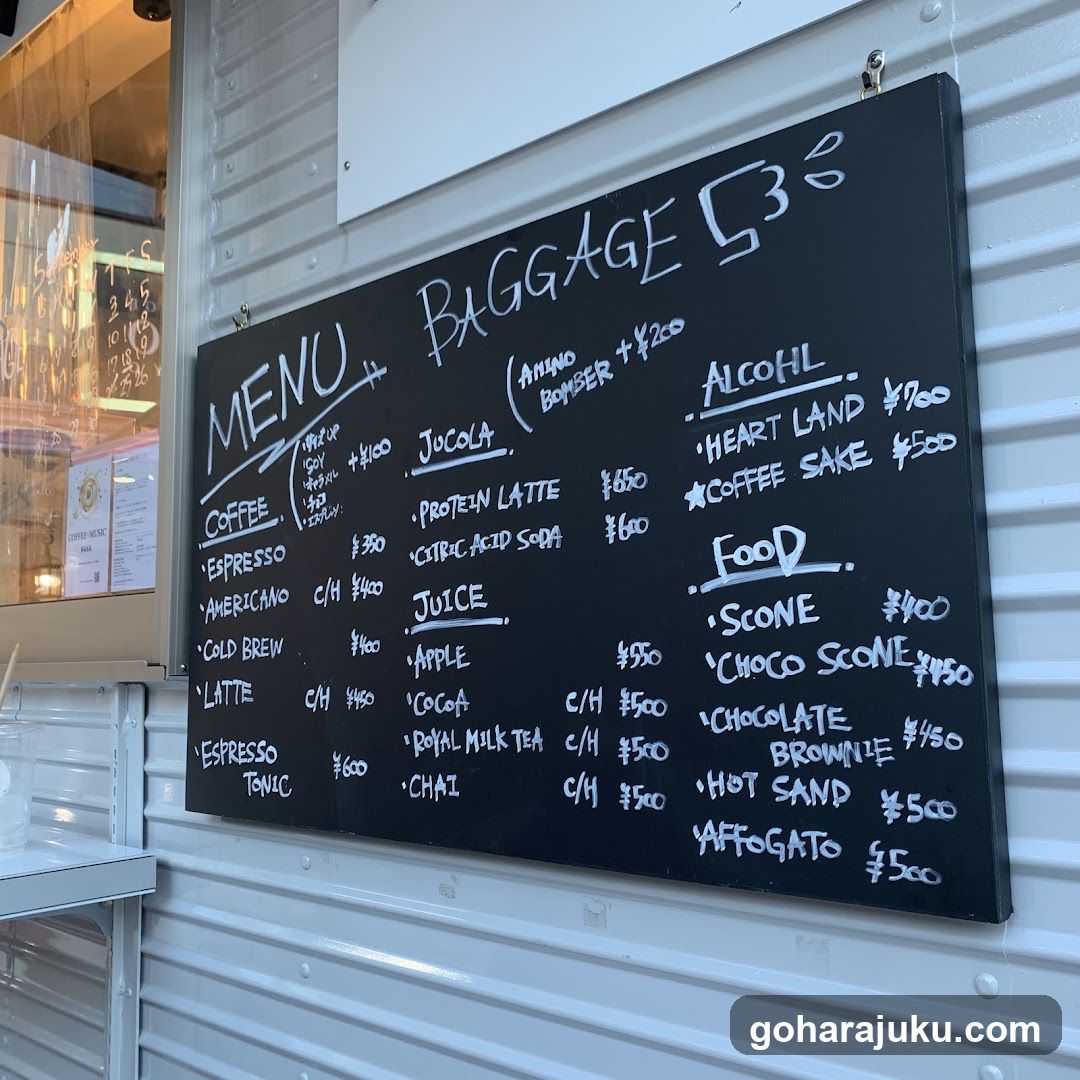 BAGGAGE
MENU
COFFEE
サイズUP
SOY
キャラメル
チョコ
+¥100
ESPRESSO ¥350
AMERICANO C/H ¥400
COLD BREW ¥400
LATTE C/H ¥450
ESPRESSO
TONIC ¥600
JUCOLA
(AMINO
BOMBER +¥200
PROTEIN LATTE ¥650
CITRIC ACID SODA ¥600
JUICE
APPLE ¥550
COCOA C/H ¥500
ROYAL MILK TEA C/H ¥500
CHAI C/H ¥500
ALCOHL
HEART LAND ¥700
★COFFEE SAKE ¥500
FOOD
SCONE ¥400
CHOCO SCONE ¥450
CHOCOLATE
BROWNIE ¥450
HOT SAND ¥500
AFFOGATO ¥500
COFFEE+MUSIC
goharajuku.com